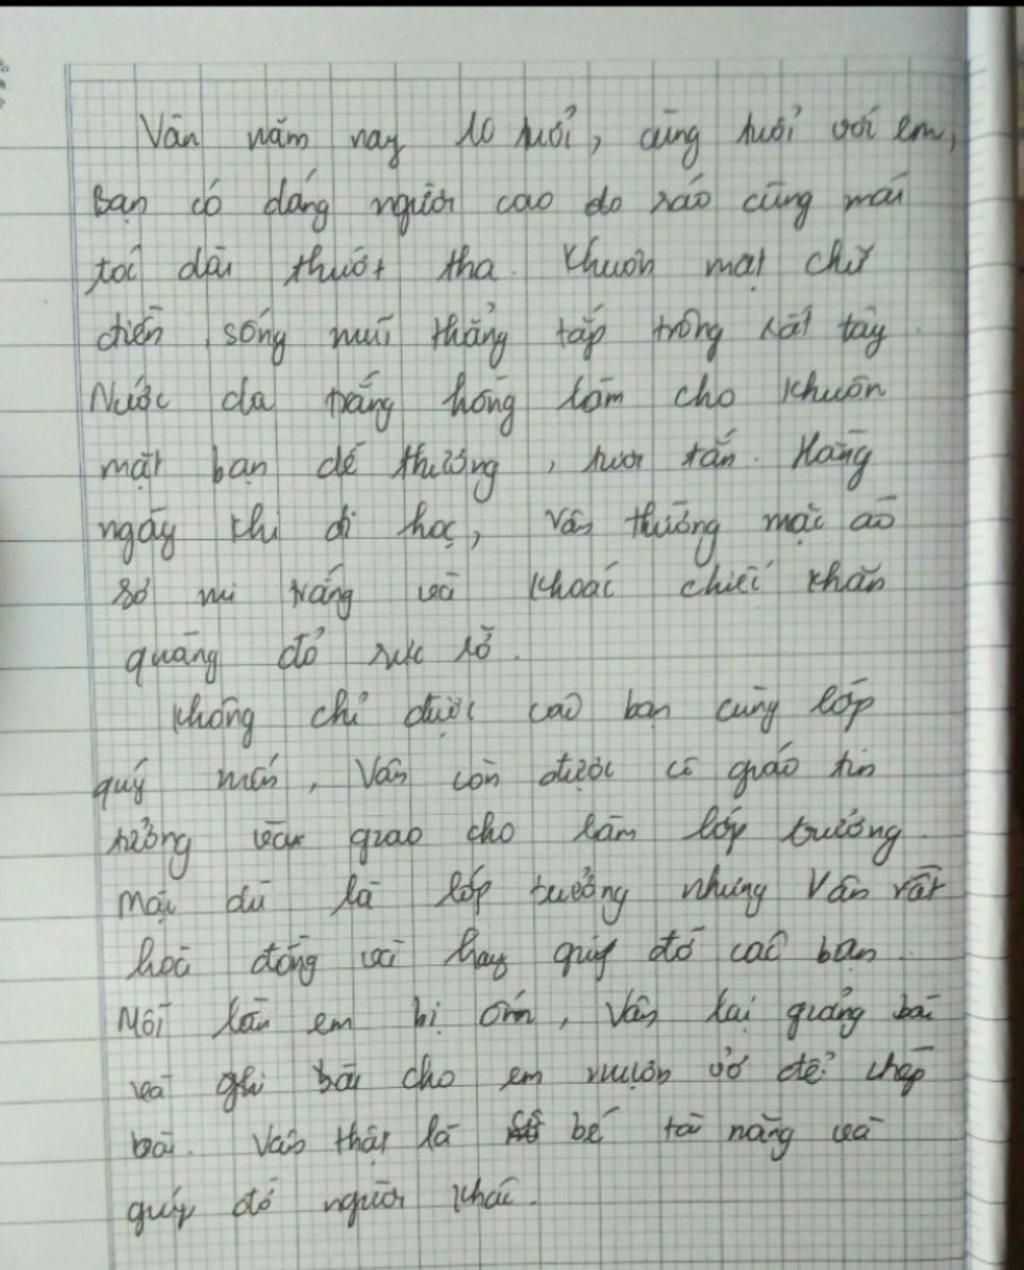 Vân năm nay 10 tuổi, cùng tuổi với em,
Bạn có dáng người cao do ráo cùng mái
tóc dài thướt tha. Khuôn mặt chữ
điền, sóng mũi thẳng tắp trông rất tây.
Nước da trắng hồng làm cho khuôn
mặt bạn dễ thương, tươi tắn. Hàng
ngày khi đi học, Vân thường mặc áo
sơ mi trắng và khoác chiếc khăn
quàng đỏ rực rỡ.
Không chỉ được các bạn cùng lớp
quý mến, Vân còn được cô giáo tin
tưởng và giao cho làm lớp trưởng.
Mặc dù là lớp trưởng nhưng Vân rất
hoà đồng và hay giúp đỡ các bạn.
Mỗi lần em bị ốm, Vân lại giảng bài
và ghi bài cho em mượn vở để chép
bài. Vân thật là bé tài năng và
giúp đỡ người khác.